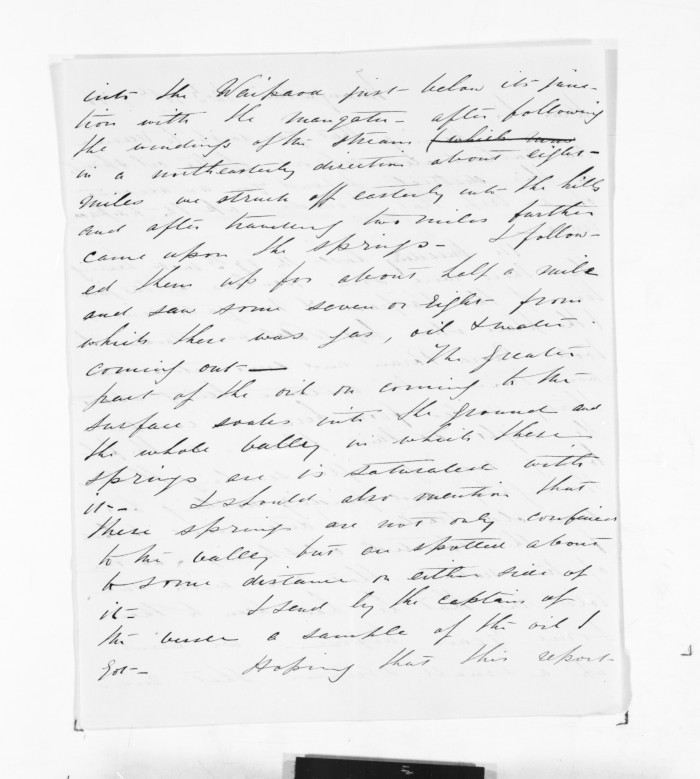 into the Waipaoa just below its junc-
tion with the mangatu - after following
the windings of the stream (which runs
in a northeasterly direction about eight
miles we struck off easterly into the hills
and after traveling two miles further
came upon the springs - I follow-
ed them up for about half a mile
and saw some seven or eight from
which there was gas, oil & water
coming out — The greater
part of the oil on coming to the
surface soaks into the ground and
the whole valley in which these
springs are is saturated with
it - I should also mention that
these springs are not only confined
to the valley but are spotted about
to some distance on either side of
it - I send by the captain of
the vessel a sample of the oil I
got - Hoping that this report